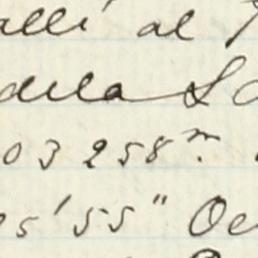 alli al
dela S
03258 m.
05'55" Oe